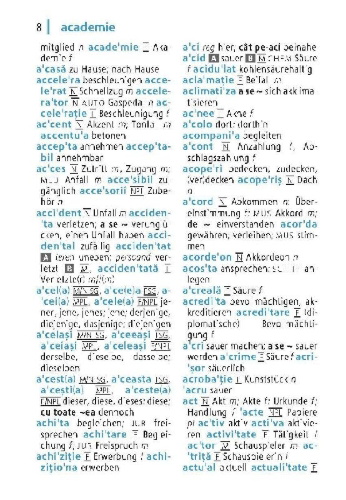 8 | academie
mitglied n acade'mie F Aka-
demie f
a'casă zu Hause; nach Hause
accele'ra beschleunigen accele-
le'rat N Schnellzug m accele-
ra'tor N AUTO Gaspedal n ac-
cele'rație F Beschleunigung f
ac'cent N Akzent m; Tonfall m
accentu'a betonen
accep'ta annehmen accep-ta-
bil annehmbar
ac'ces N Zutritt m, Zugang m;
acce'sibil zu-
gänglich acce'sorii NPL Zube-
hör n
acci'dent N Unfall m acciden-
'ta verletzen; a se ~ verunglü-
cken, einen Unfall haben acci-
den'tal zufällig acciden'tat
A teren uneben; persoană ver-
letzt B M, acciden'tată F
Verletzte(r) m/f(m)
a'cel(a) M/N SG, a'ceea FSG, a-
'cei(a) MPL, a'cele(a) F/NPL je-
ner, jene, jenes; jene; derjenige,
diejenige, dasjenige; diejenigen
a'celași M/N SG, a'ceeași FSG,
a'ceiași MPL, a'celeași F/NPL
derselbe, dieselbe, dasselbe;
dieselben
a'cest(a) M/N SG, a'ceasta FSG,
a'cești(a) MPL, a'ceste(a)
F/NPL dieser, diese, dieses; diese;
cu toate ~ea dennoch
achi'ta begleichen; JUR frei-
sprechen achi'tare F Beglei-
chung f; JUR Freispruch m
achi'ziție F Erwerbung f achi-
zițio'na erwerben
a'ci reg hier; cât pe-aci beinahe
a'cid A sauer B N CHEM Säure
f acidu'lat kohlensäurehaltig
acla'mație F Beifall m
aclimati'za a se ~ sich akklima-
tisieren
ac'nee F Akne f
a'colo dort; dorthin
acompani'a begleiten
a'cont N Anzahlung f, Ab-
schlagszahlung f
acope'ri bedecken, zudecken,
(ver)decken acope'riș N Dach
n
a'cord N Abkommen n; Über-
einstimmung f; MUS Akkord m;
de ~ einverstanden acor'da
gewähren, verleihen; MUS stim-
men
acorde'on N Akkordeon n
acos'ta ansprechen; SCHIFF an-
legen
a'creală F Säure f
acredi'ta bevollmächtigen, ak-
kreditieren acredi'tare F (di-
plomatische) Bevollmächti-
gung f
a'cri sauer machen; a se ~ sauer
werden a'crime F Säure f acri-
'șor säuerlich
acroba'ție F Kunststück n
'acru sauer
act N Akt m; Akte f; Urkunde f;
Handlung f 'acte NPL Papiere
pl ac'tiv aktiv acti'va aktivie-
ren activi'tate F Tätigkeit f
ac'tor M Schauspieler m ac-
'triță F Schauspielerin f
actu'al aktuell actuali'tate F